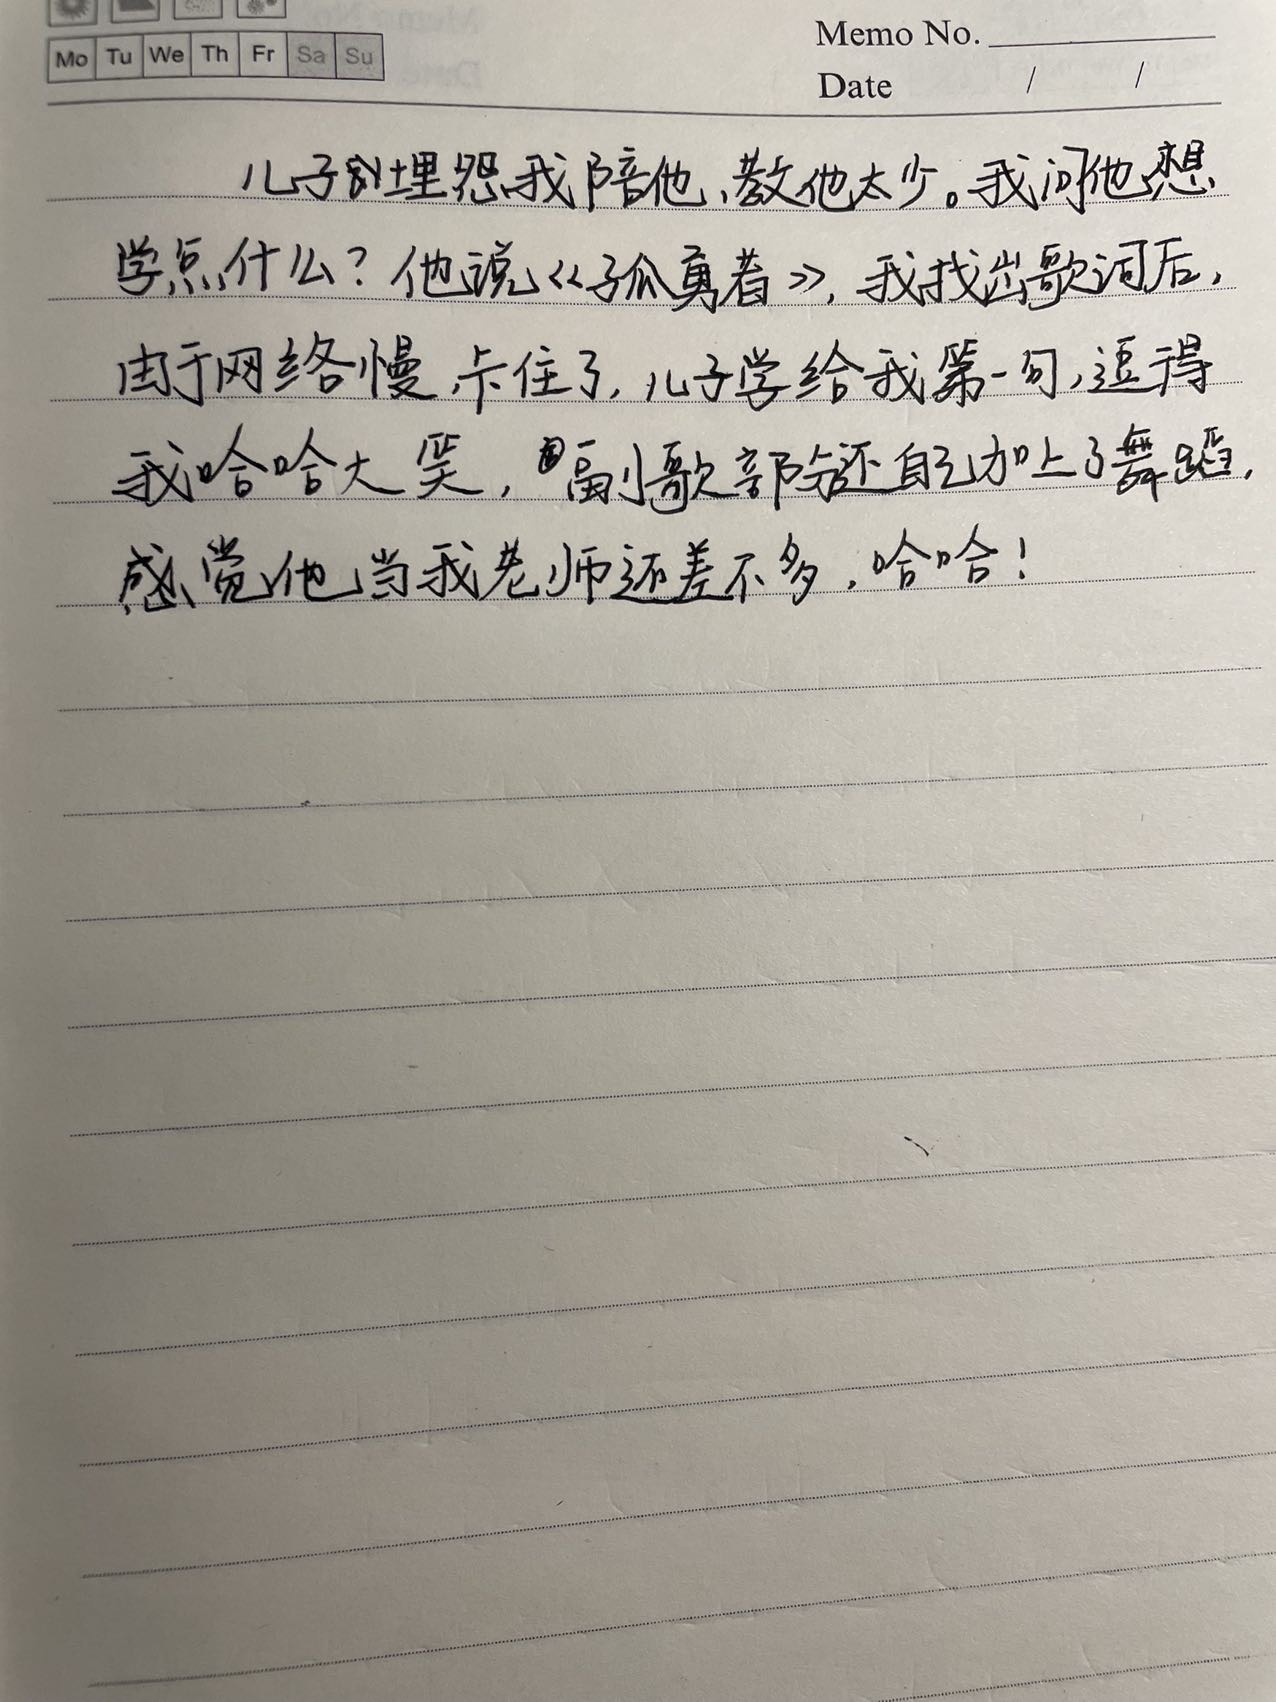 Mo Tu We Th Fr Sa Su
Memo No.
Date / /
儿子埋怨我陪他、教他太少。我问他想
学点什么？他说《孤勇者》，我找出歌词后，
由于网络慢，卡住了，儿子学给我第一句，逗得
我哈哈大笑，副歌部分还自己加上了舞蹈，
感觉他当我老师还差不多，哈哈！